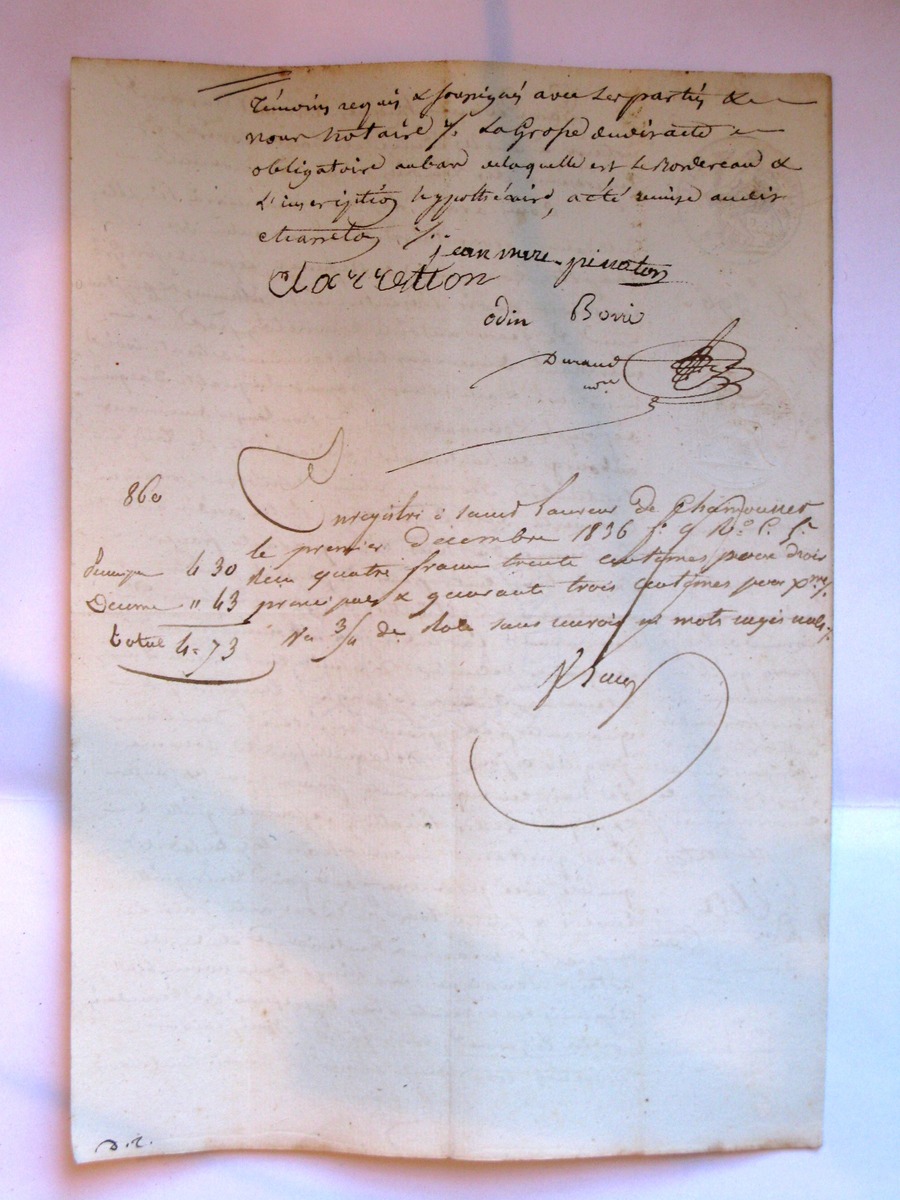 témoins requis & soussignés avec les parties &
nous notaire ·/· La Grosse dudit acte
obligatoire au bas de laquelle est le Bordereau &
L'inscription hypothécaire, a été remise audit
charreton ·/·
jean marc pinaton
Charretton
odin Borri
Durand
nore
860
Enregistré à saint Laurent de Chamousset
le premier décembre 1836 f° 9 V° C. 5.
Reçu quatre francs trente centimes pour droit
principal & quarante trois centimes pour
Principal 4 30
Décime " 43
total 4 = 73
3/4 de sans mots nuls
D. R.